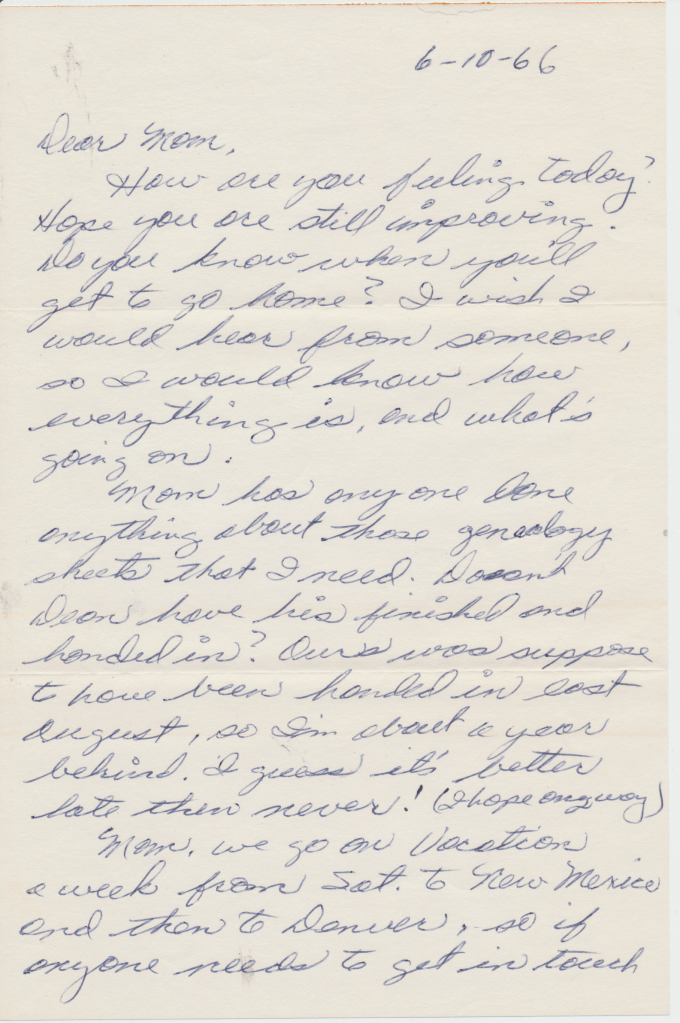 6-10-66
Dear Mom,
How are you feeling today?
Hope you are still improving.
Do you know when you'll
get to go home? I wish I
would hear from someone,
so I would know how
everything is, and what's
going on.
Mom has anyone done
anything about those genealogy
sheets that I need. Doesn't
Dean have his finished and
handed in? Ours was suppose
to have been handed in last
August, so I'm about a year
behind. I guess it's better
late then never! (I hope anyway)
Mom, we go on Vacation
a week from Sat. to New Mexico
and then to Denver, so if
anyone needs to get in touch